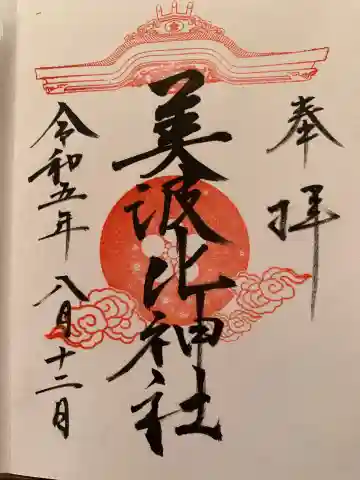 奉拝
美波比神社
令和五年 八月十二日